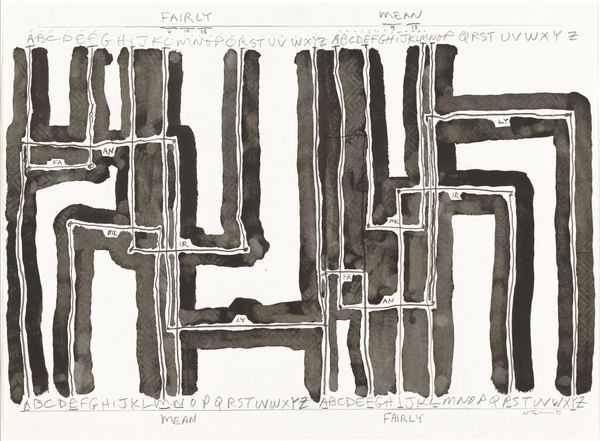 FAIRLY MEAN
6 10 14 9 13
ABCDEFGHIJKLMNOPQRSTUVWXYZ ABCDEFGHIJKLMNOPQRSTUVWXYZ
LY
AN
FA
IR
ME ME
IR
FA
AN
LY
ABCDEFGHIJKLMNOPQRSTUVWXYZ ABCDEFGHIJKLMNOPQRSTUVWXYZ
MEAN FAIRLY